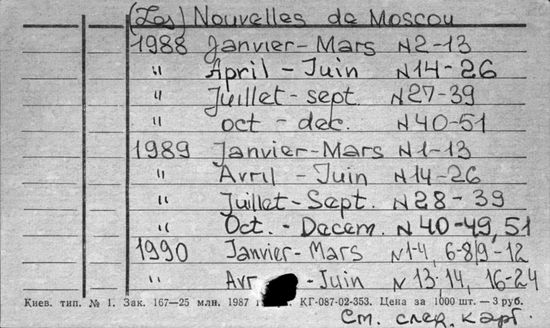 (Les) Nouvelles de Moscou
1988 Janvier-Mars N 2-13
" April - Juin N 14-26
" Juillet - sept. N 27-39
" oct - dec. N 40-51
1989 Janvier-Mars N 1-13
" Avril - Juin N 14-26
" Juillet-Sept. N 28-39
" Oct. - Decem. N 40-49, 51
1990 Janvier-Mars N 1-4, 6-8, 9-12
" Avr - Juin N 13, 14, 16-24
Киев. тип. № 1. Зак. 167—25 млн. 1987 КГ-087-02-353. Цена за 1000 шт. — 3 руб.
См. след. карт.